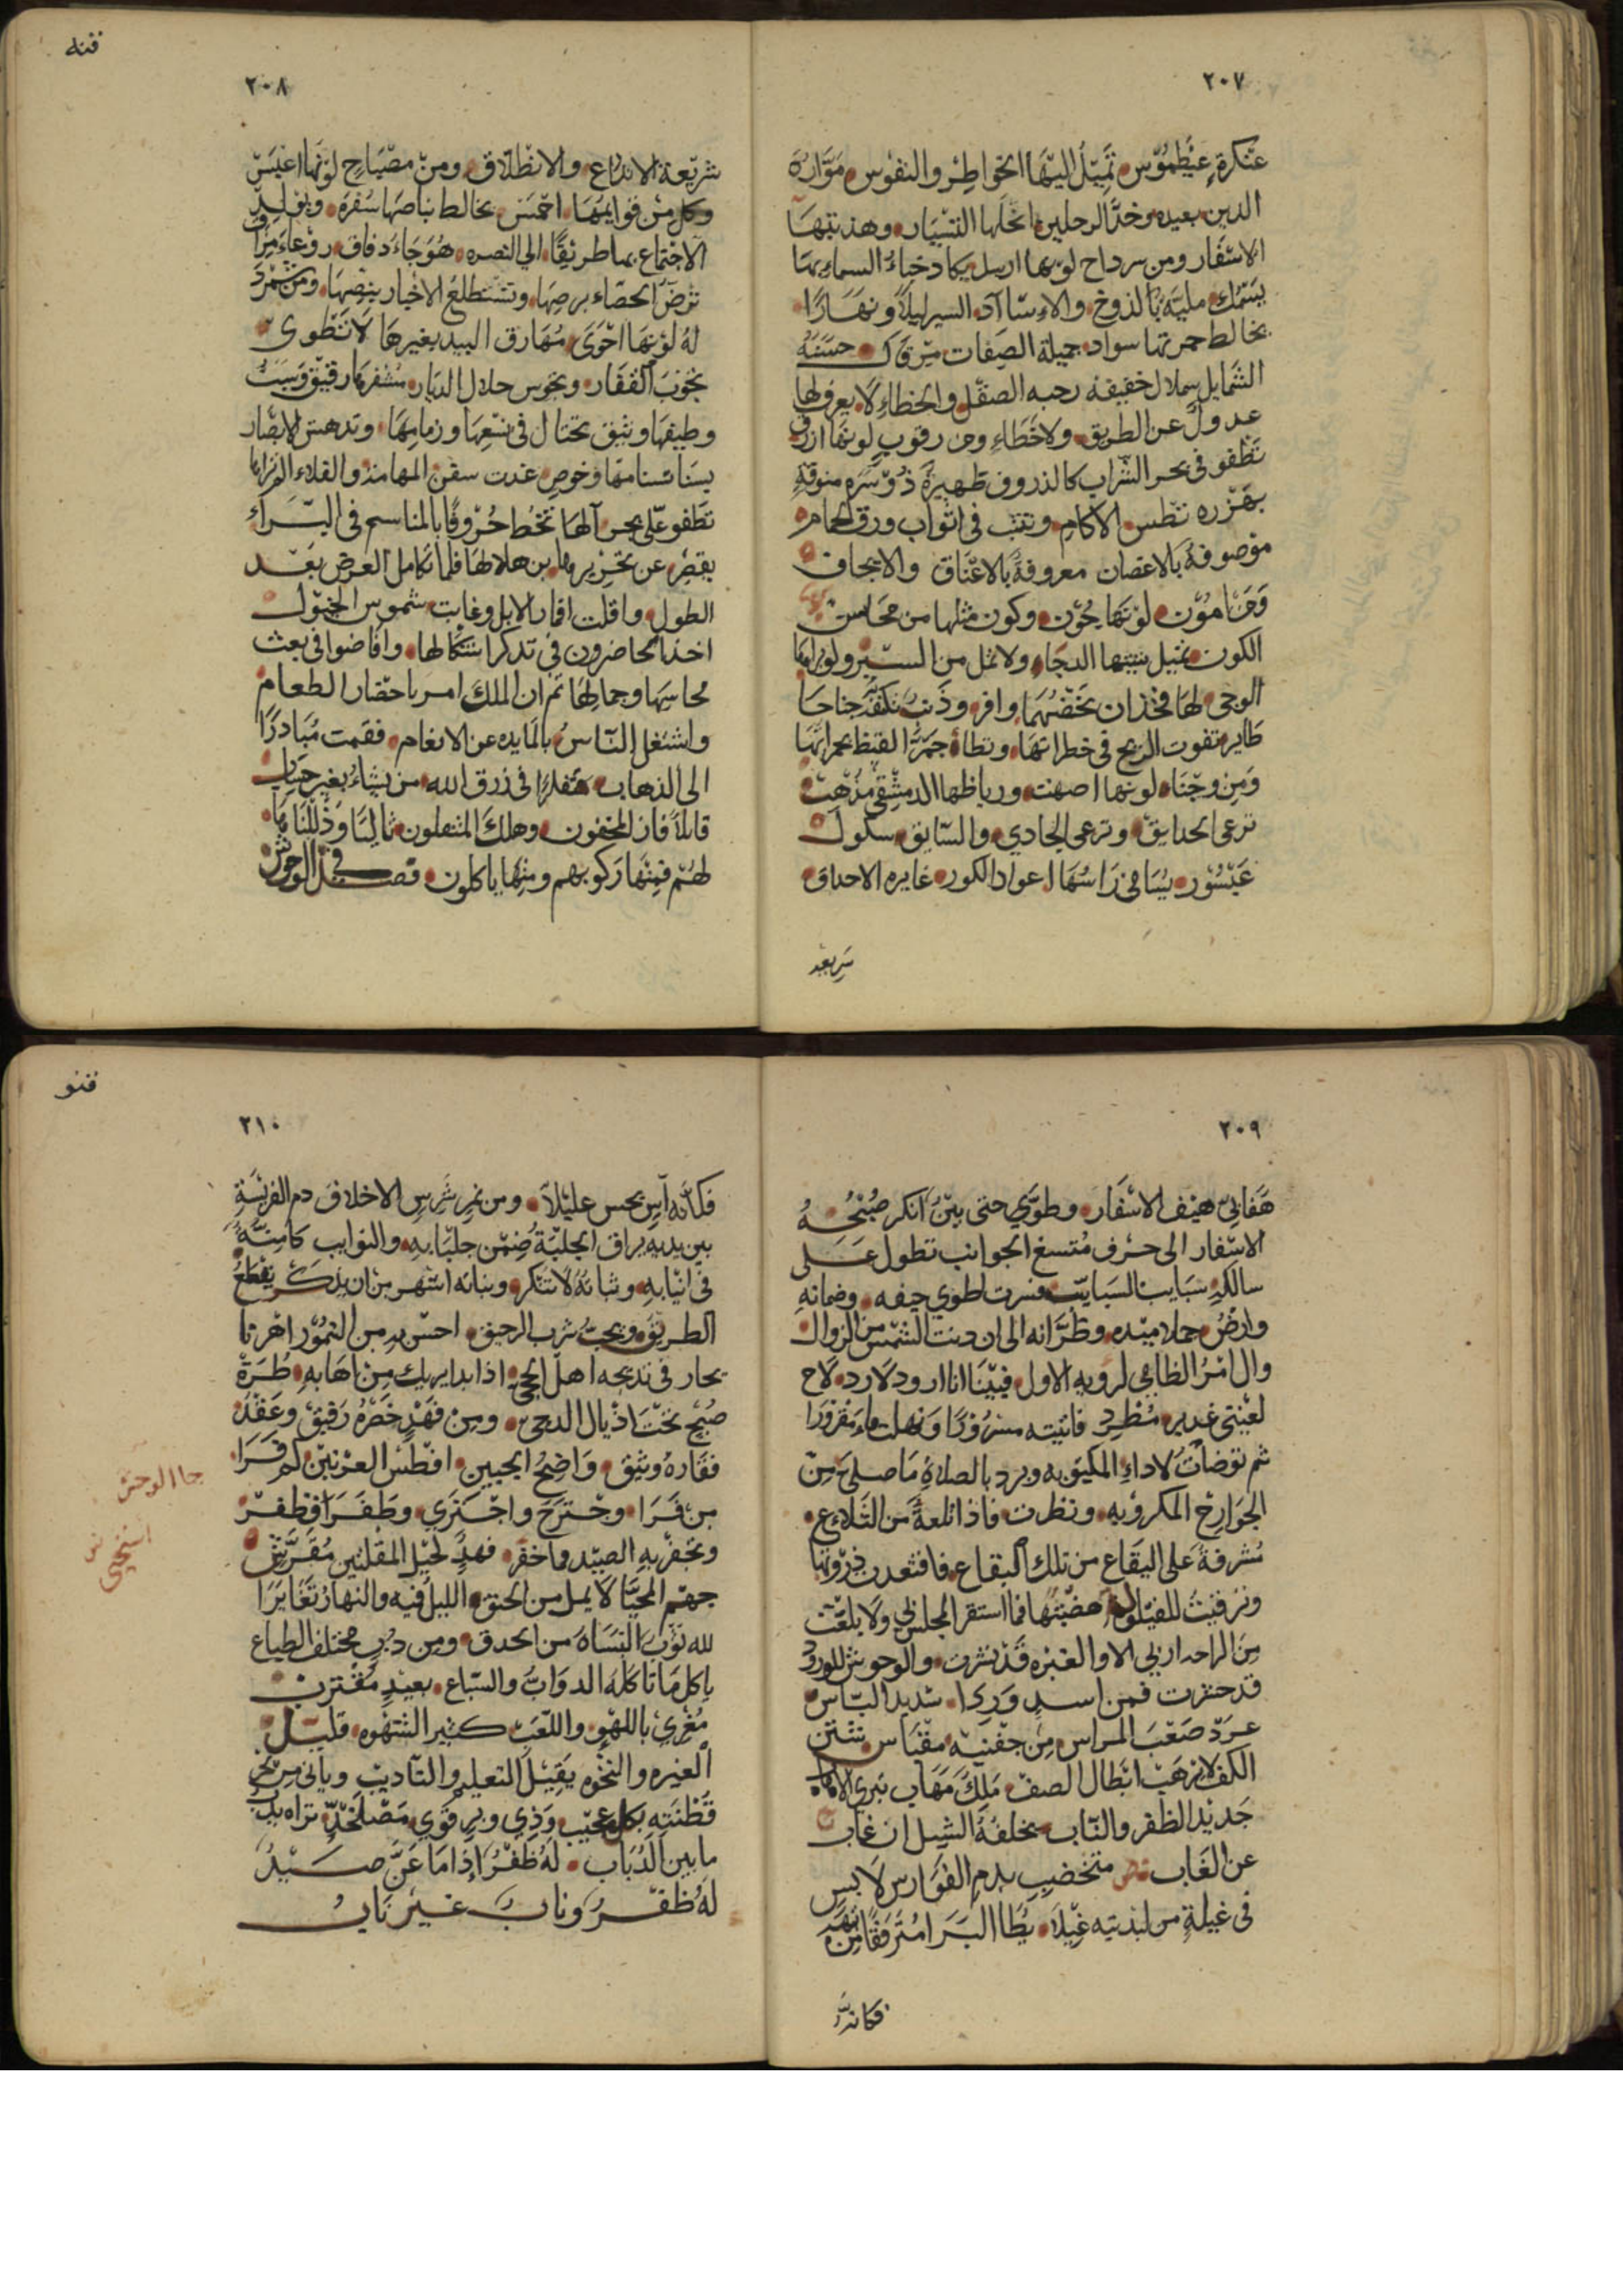 ٢٠٧
عنكرة عيطموس تميل اليها الخواطر والنفوس موارة
اليدين بعيده وخد الرجلين انحلها التسيار وهذبتها
الاسفار ومن سرداح لونها ارمل يكاد خباء السماء بها
يستمك مليه بالذوخ والاساد السير ليلا ونهارا
يخالط حمرتها سواد جميلة الصفات مرقال حسنة
الشمايل شملال خفيفه رحبه الصقل والخطاء لا يعرف لها
عدول عن الطريق ولا خطاء ومن رقوب لونها ازرق
تطفو في بحر السراب كالذروف ظهيرة ذو سرة منوقة
بهزره تطس الاكام وتثب في اثواب ورق الحمام
موصوفة بالاغصان معروفة بالاعناق والايجاف
ومن امون لونها يحون وكون مثلها من محاسن
الكون تميل بنيتها الدجاء ولا تمل من السير ولو رامها
الوجى لها فخذان نحضهما وافر وذنب تكفه جناحا
طاير تفوت الريح في خطراتها وتطأ جمر القيظ بجمراتها
ومن وجناء لونها اصهب ورباطها الدمشقي مذهب
ترعى الحدايق وترعى الحادي والسايق سلول
عيسور يسامي راسها اعواد الكور غايره الاحداق
سريعة
٢٠٨
فنه
سريعة الاندراع والانطلاق ومن مصباح لونها اعيس
وكل من قوايمها احمس يخالط بياضها سفرة ويوليد
الاجتماع بها طريقا الي النصره هوجاء دفاق روعاء مزاق
ترض الحصاء برصها وتستطلع الاخبار بنصها ومن شمردل
له لونها احوى مهارق البيد بغيرها لا تنطوى
تجوب القفار وتجوس خلال الديار مشفرها رقيق وسبب
وطيفها وثيق تختال في نسعها وزمامها وتدهش الابصار
بسنا سنامها وخوص غدت سفن المهامذ والفلاء الزاما
تطفو على بحر آلها تخط حروفا بالمناسم في البراء
بقصر عن تحريرها بن هلالها فلما تكامل العرض بعد
الطول وافلت اقمار الابل وغابت شموس الخيول
اخذ الحاضرون في تدكر اشكالها وافاضوا في بعث
محاسنها وجمالها ثم ان الملك امر باحضار الطعام
واشتغل الناس بالمايده عن الانعام فقمت مبادرا
الى الذهاب متفكرا في رزق الله من يشاء بغير حساب
قايلا فاز المخفون وهلك المثقلون تاليا وذللناها
لهم فمنها ركوبهم ومنها ياكلون فصل في الوحوش
٢٠٩
هفابي هيف الاسفار وطوي حتى بين انكر صبحه
الاسفار الى حرف متسع الجوانب تطول على
سالكه سبايب السبايب فسرت لطوي حيفه وضمانه
وارض جملا ميده وظرانه الى ان دنت الشمس من الزوال
وال امر الظامي لرويه الاول فبينا انا ارود لارد لاح
لعيني غدير مطرد فاتيته مسرورا ونهلت ماء مقرورا
ثم توضات لاداء المكتوبه وبرد بالصلاة ما صلى من
الجوارح المكروبه ونظرت فاذا تلعة من التلاع
مشرفة على اليقاع من تلك البقاع فاقتعدت ذروتها
وترقبت للقيلوله هضبتها فما استقر المجلس بي ولا بلغت
من الراحه اربي الا والغبره قد نثرت والوحوش للورود
قد حشرت فمن اسد ورد شديد الباس
عرد صعب المراس من جفنيه مقباس شثن
الكف لا يرهب ابطال الصف ملك مهاب نبري الاكام
حديد الظفر والناب يخلفه الشبل ان غاب
عن الغاب متخضب بدم الفوارس لابس
في غيلة من لبدتيه غيلا يطا البرا مترفقا من تيهه
فكانه
٢١٠
فنو
فكانه آس يجس عليلا ومن نمر شرس الاخلاق دم الفريسة
بين يديه براق الجلبة ضمن جلبابه والنوايب كامنة
في انيابه وثباته لا تنكر وبناته اشهر من ان يذكر يقطع
الطريق ويجب شرب الرحيق احسن به من التمور اهرتا
يحار في تدبيجه اهل الحجى اذا بدا يريك من اهابه طرة
صبح تحت اذيال الدجى ومن فهد خصره رقيق وعقد
فقاره وثيق واضح الجبين افطس العرنين كم قرا
من قرا وخترح واجتري وطفر اقظفر
وتحفز به الصيد وما خفر فهد لحيل المقلتين مقرش
جهم المحيا لا يمل من الحنق الليل فيه والنهار تغايرا
لله ثوب النساه من الحدق ومن دب مختلف الطباع
ياكل ما تاكله الدواب والسباع بعيد مقترب
مغري باللهو واللعب كثير الشهوه قليل
الغيره والنخوه يقبل التعليم والتاديب وياتي من نحي
فطنته بكل عجيب وذي وبر قوي مصلخد تراه يدب
ما بين الدباب له ظفر اذا ما عن صيد
له ظفر وناب غير ناب
حا الوحش